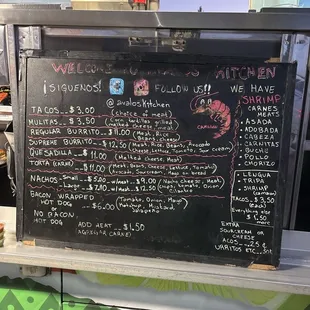 WELCOME KITCHEN
¡SIGUENOS! FOLLOW US!!
@avaloskitchen
WE HAVE SHRIMP
CAMARON
TACOS... $3.00 (choice of meat)
MULITAS... $3.50 (Melted cheese, Meat)
REGULAR BURRITO... $11.00 (Meat, Rice Beans, Cheese)
SUPREME BURRITO... $12.50 (Meat, Rice, Beans, Avocado Cheese, Lettuce, Tomato, Sour cream)
QUESADILLA... $11.00 (Melted Cheese, Meat)
TORTA (CARNE)... $11.00 (Meat, Beans, Lettuce, Tomato Avocado, Sourcream, Mayo on bread)
NACHOS Small... $5.50 w/meat $9.00 (Nacho Cheese, Meat
Large... $7.50 w/meat $12.50 Tomato, Onion, Cilantro)
BACON WRAPPED HOT DOG
OR NO BACON HOT DOG
$6.00 (Tomato, Onion, Mayo Ketchup, Mustard, Jalapeño)
ADD MEAT $1.50
(AGREGAR CARNE)
CARNES
MEATS
ASADA
ADOBADA
CABEZA
CARNITAS
BUCHE
POLLO
CHORIZO
LENGUA
TRIPA
SHRIMP
(camaron)
TACOS. $3.50
(each)
Everything else
$1.50
more
EXTRA
SOURCREAM OR
CHEESE